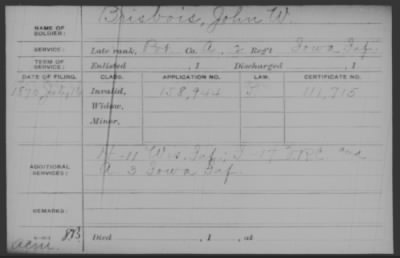 Brisbois, John W.
NAME OF SOLDIER:
SERVICE: Late rank, Pvt Co. A, 2 Reg't Iowa Inf.
TERM OF SERVICE: Enlisted , 1 Discharged , 1
DATE OF FILING. CLASS. APPLICATION NO. LAW. CERTIFICATE NO.
1870 July Invalid, 158,944 111,715
Widow,
Minor,
ADDITIONAL SERVICES: H-11 Wis. Inf; I-17 VRC and
A 3 Iowa Inf.
REMARKS:
873 Died , 1 , at